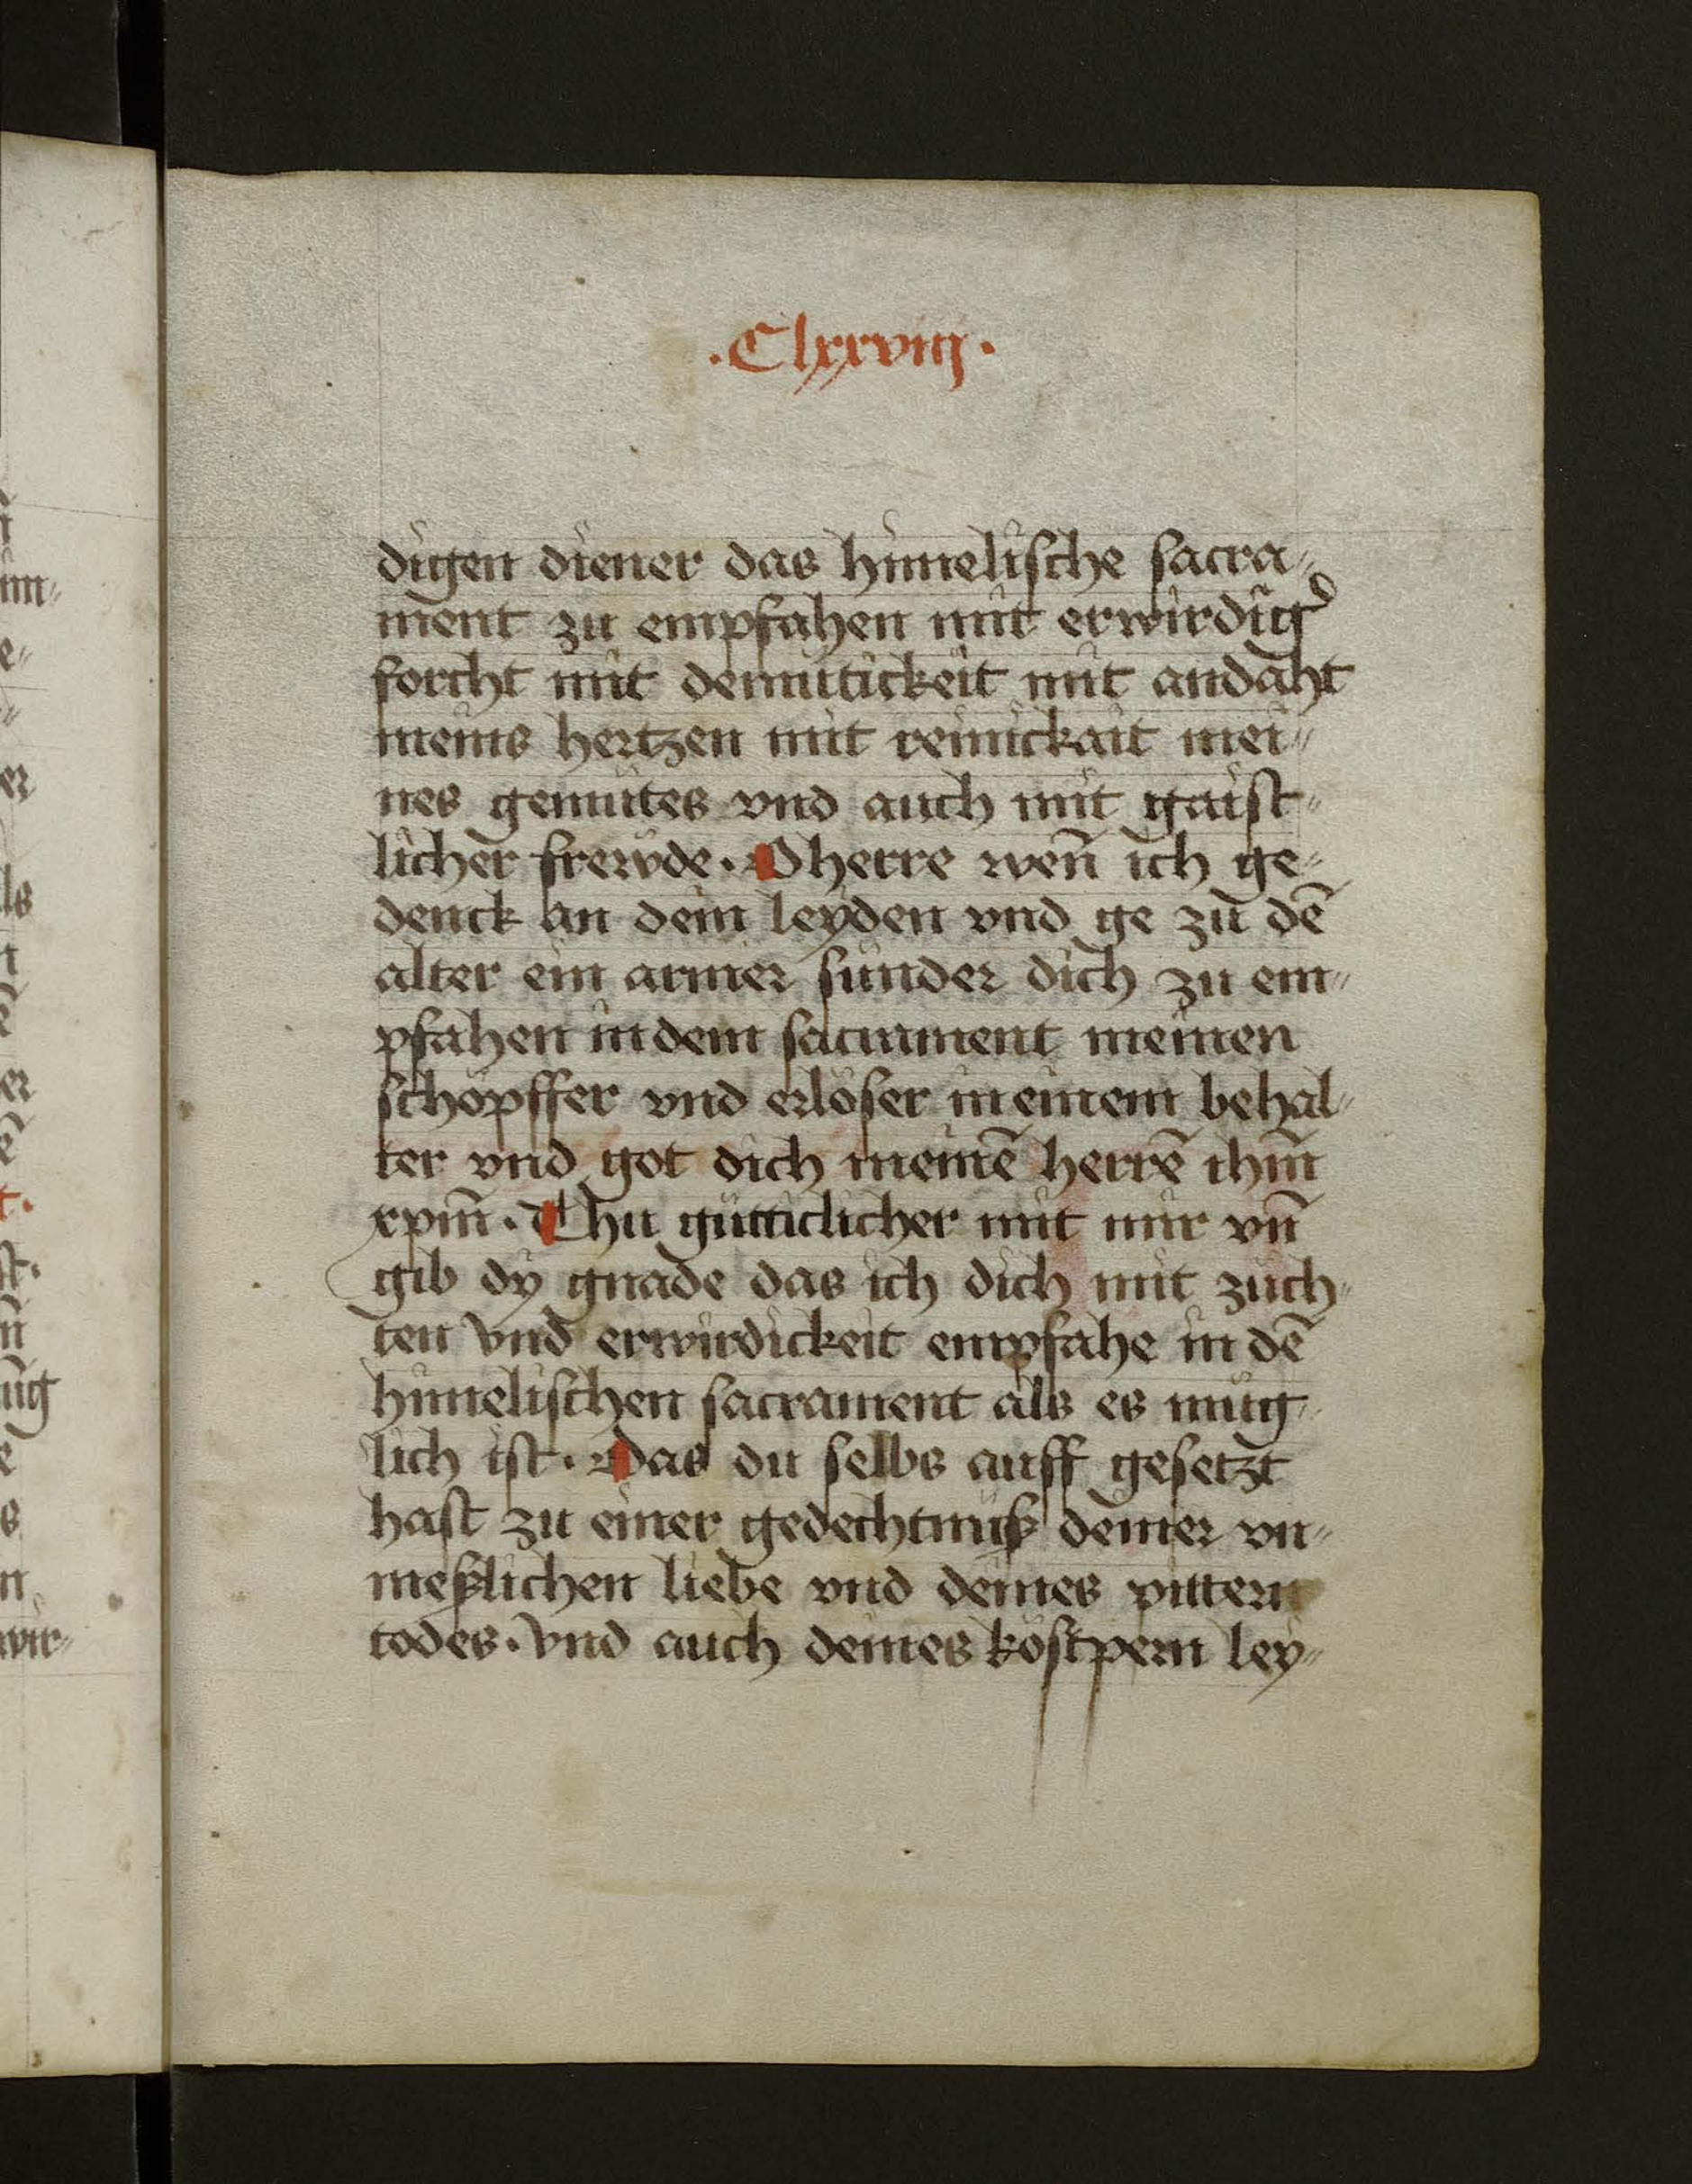 .Clxxviij.
digen diener das himelische sacra„
ment zu empfahen mit erwirdig̉
forcht mit demutickeit mit andaht
meins hertzen mit reinickait mei„
nes gemütes vnd auch mit gaist„
licher frewde. O herre weñ ich ge„
denck an dein leyden vnd ge zu dē
alter ein armer sunder dich zu em„
pfahen in dem sacrament meinen
schöpffer vnd erlöser meinem behal„
ter vnd got dich meinē herrē ihm̄
xpm̄. Thu gütticlicher mit mir vñ
gib dÿ gnade das ich dich mit züch„
ten vnd erwirdickeit empfahe in dē
himelischen sacrament als es müg„
lich ist. Das du selbs auff gesetzt
hast zu einer gedechtnüß deiner vn„
meßlichen liebe vnd deines pittern
todes. vnd auch deines köstpern ley„